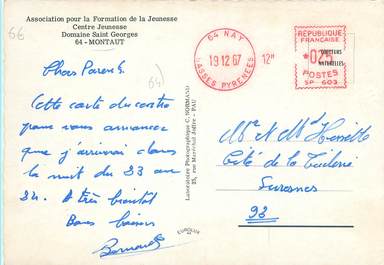 66
Association pour la Formation de la Jeunesse
Centre Jeunesse
Domaine Saint Georges
64 - MONTAUT
64)
Chers Parents
Cette carte du centre
pour vous annoncer
que j'arriverai dans
la nuit du 23 au
24. A très bientôt
Bons baisers
Bernard
Laboratoire Photographique C. NORMAND
25, rue Maréchal Joffre - PAU
EUROLUX
64 NAY
19 12 67
BASSES PYRENEES
12H
RÉPUBLIQUE
FRANÇAISE
025
POSTES
SP 603
NATURELLES
Mr & Mme
Cité de la Tuilerie
Suresnes
92